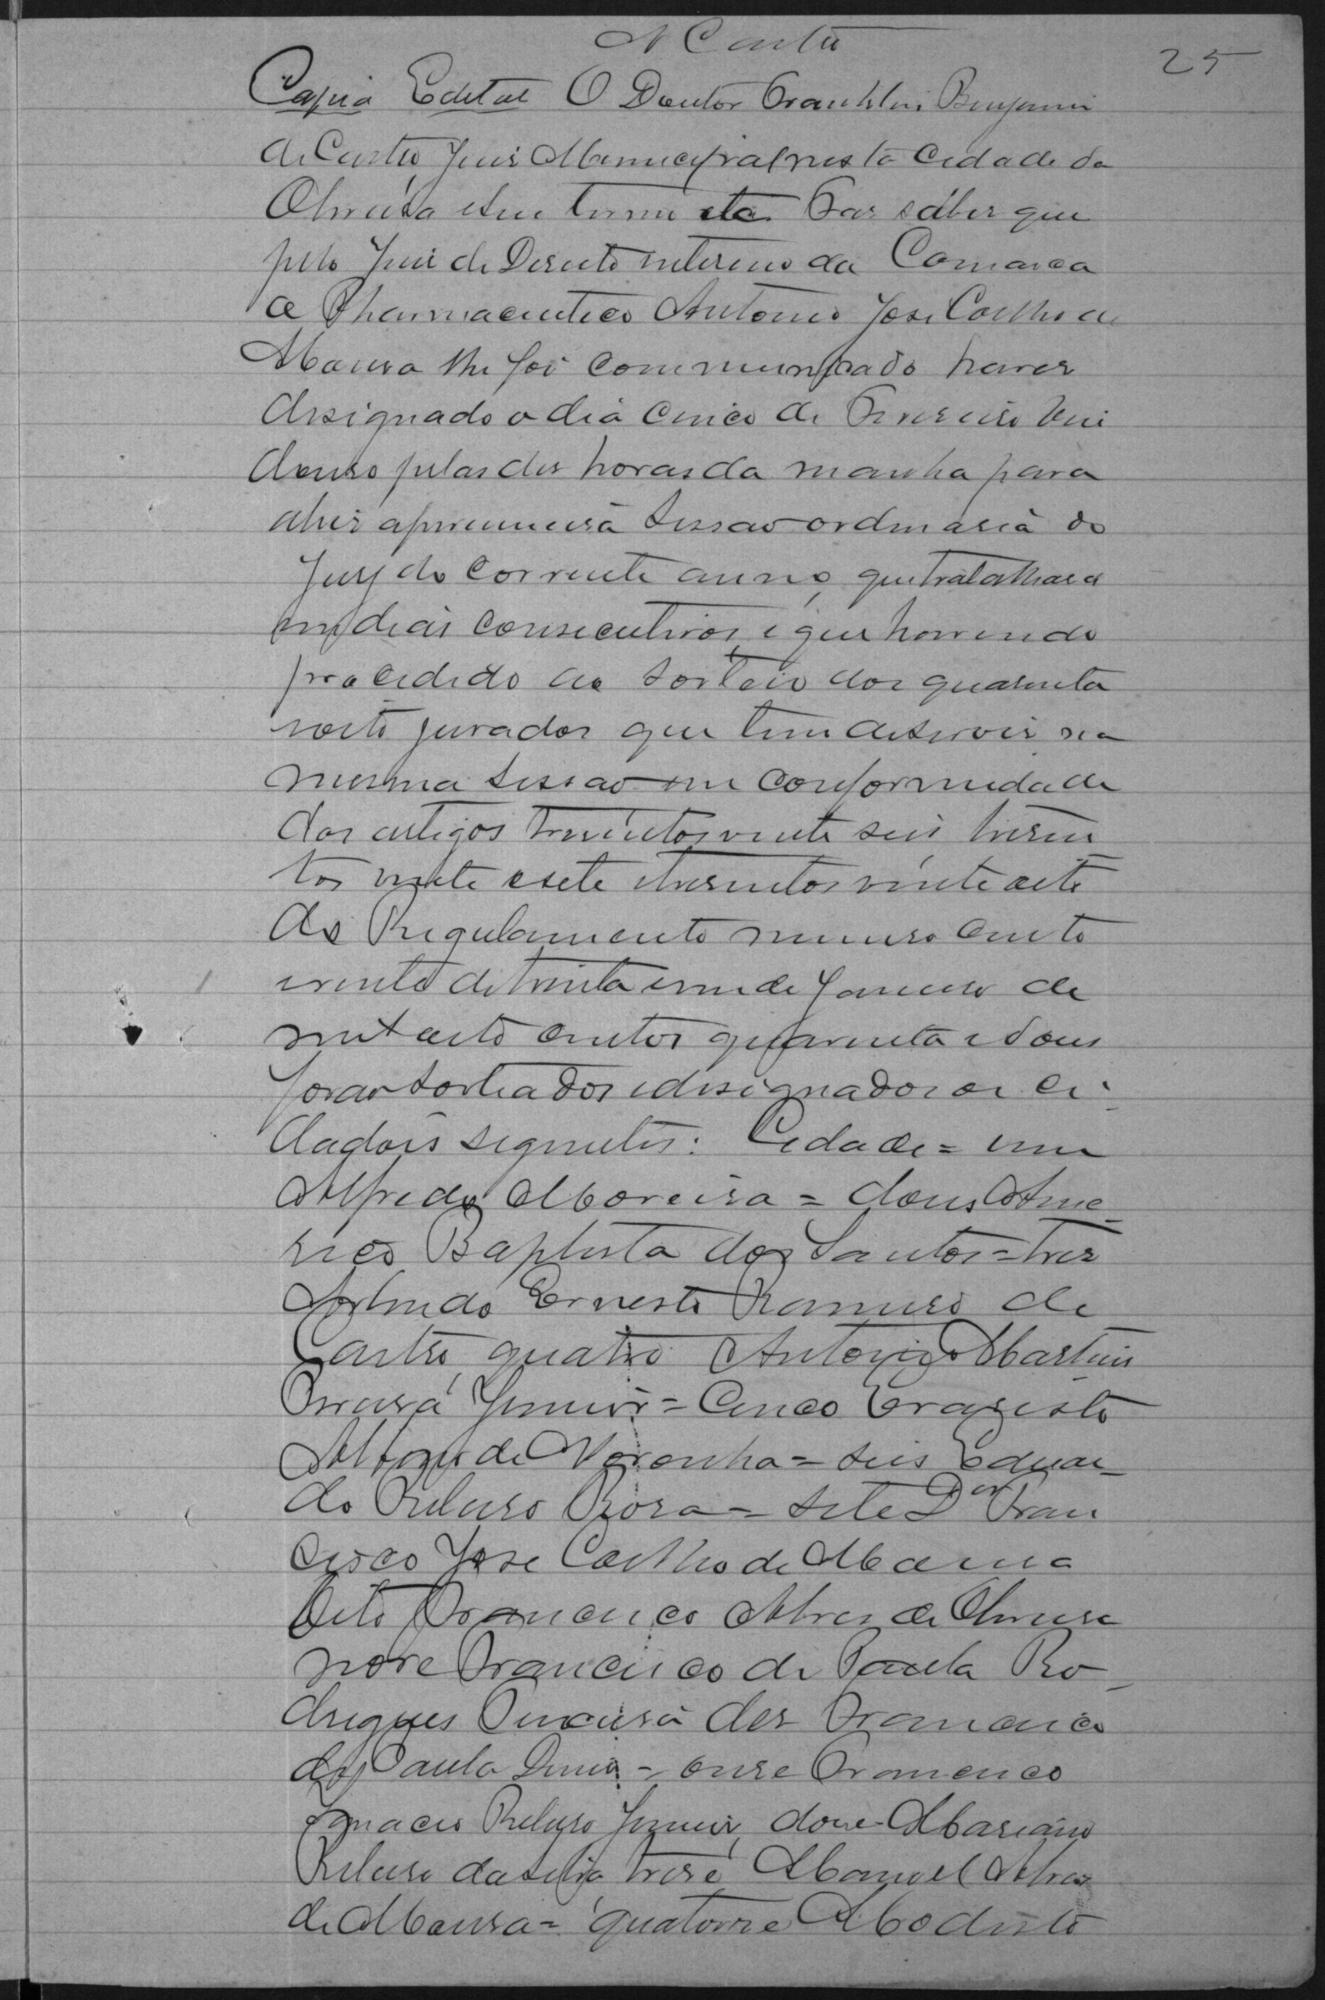 N Castro
25
Copia Edital O Doutor Franklin Benjamin
de Castro, Juis Municipal nesta Cidade da
Oliveira e seu termo etc. Fas sáber que
pelo Juis de Direito interino da Comarca
o Pharmaceutico Antonio José Coelho de
Moura lhe foi communicado haver
designado o dia cinco de Fevereiro vin
douro pelas des horas da manha para
abrir a primeira sessao ordinaria do
Jury do corrente anno, que trabalhará
em dias consecutivos, e que havendo
procedido ao sorteio dos quarenta
e oito jurados que tem de servir na
mesma sessao em conformidade
dos artigos tresentos vinte seis tresen
tos vinte e sete e tresentos vinte oito
do Regulamento numero cento
e vinte de trinta e um de Janeiro de
mil oito centos quarenta e dous
forao sorteados e designados os ci-
dadãos seguintes: Cidade = um
Alfredo Moreira = dous Ame-
rico Baptista dos Santos = tres
Ernesto Ramiro de
Castro, quatro Antonio Martins
Junior = Cinco Erasisto
de Noronha = seis Eduar-
do Ribeiro Rosa = sete Dor Fran
cisco José Coelho de Moura
Oito Francisco Alves de Oliveira
nove Francisco de Paula Ro-
drigues des Francisco
de Paula Diniz = onse Francisco
Ignacio Ribeiro Junior, dose Mariano
Ribeiro da Silva, trese Manoel Alves
de Moura = quatorse Modesto